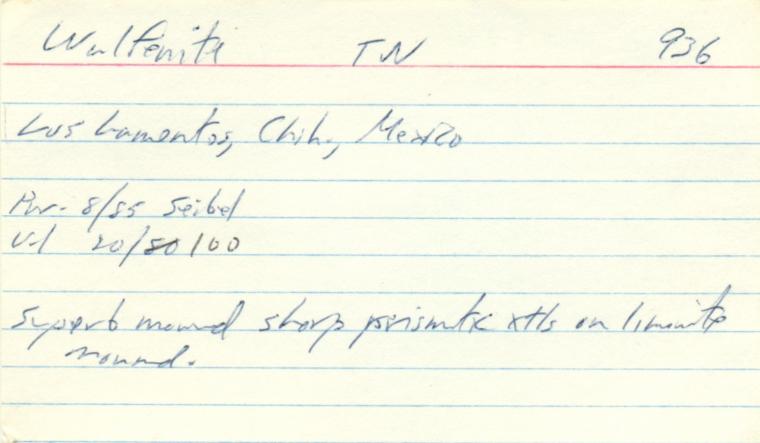 Wulfenite TN 936
Los Lamentos, Chih., Mexico
Pur. 8/85 Seibel
Val 20/80/100
Superb mound sharp prismtc xtls on limonite
mound.